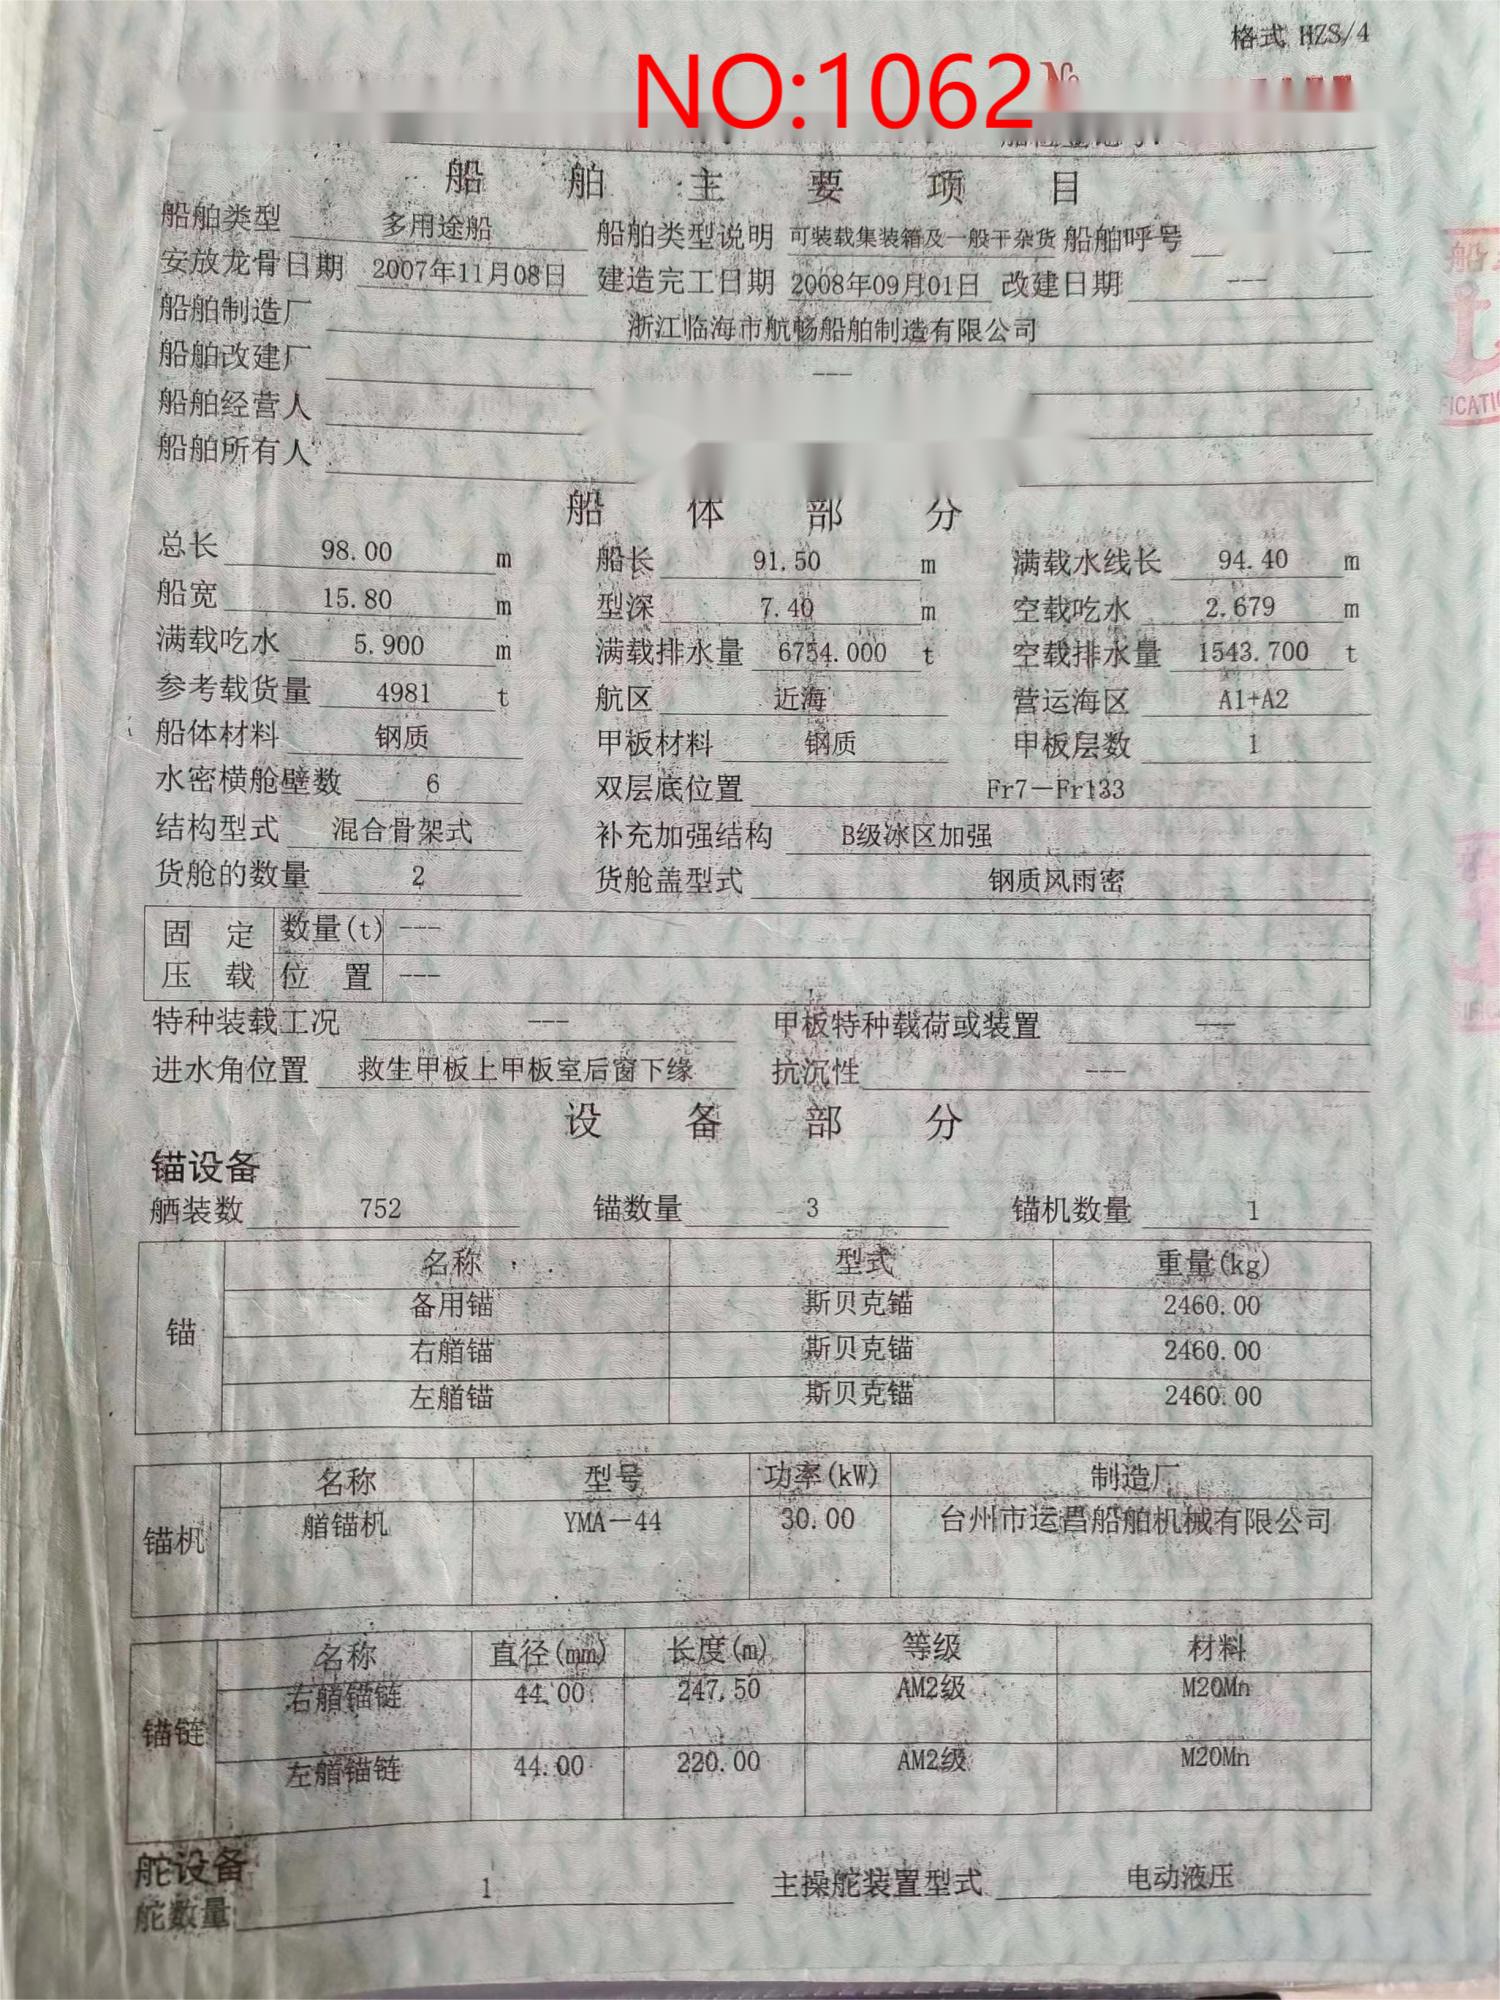 格式 HZS/4
NO:1062
№
船舶主要项目
船舶类型 多用途船 船舶类型说明 可装载集装箱及一般干杂货 船舶呼号
安放龙骨日期 2007年11月08日 建造完工日期 2008年09月01日 改建日期 ---
船舶制造厂 浙江临海市航畅船舶制造有限公司
船舶改建厂 ---
船舶经营人
船舶所有人
船体部分
总长 98.00 m 船长 91.50 m 满载水线长 94.40 m
船宽 15.80 m 型深 7.40 m 空载吃水 2.679 m
满载吃水 5.900 m 满载排水量 6754.000 t 空载排水量 1543.700 t
参考载货量 4981 t 航区 近海 营运海区 A1+A2
船体材料 钢质 甲板材料 钢质 甲板层数 1
水密横舱壁数 6 双层底位置 Fr7—Fr133
结构型式 混合骨架式 补充加强结构 B级冰区加强
货舱的数量 2 货舱盖型式 钢质风雨密
固定 数量(t) ---
压载 位置 ---
特种装载工况 --- 甲板特种载荷或装置 ---
进水角位置 救生甲板上甲板室后窗下缘 抗沉性 ---
设备部分
锚设备
舾装数 752 锚数量 3 锚机数量 1
名称 型式 重量(kg)
备用锚 斯贝克锚 2460.00
锚 右艏锚 斯贝克锚 2460.00
左艏锚 斯贝克锚 2460.00
名称 型号 功率(kW) 制造厂
锚机 艏锚机 YMA—44 30.00 台州市运昌船舶机械有限公司
名称 直径(mm) 长度(m) 等级 材料
右艏锚链 44.00 247.50 AM2级 M20Mn
锚链
左艏锚链 44.00 220.00 AM2级 M20Mn
舵设备
舵数量 1 主操舵装置型式 电动液压